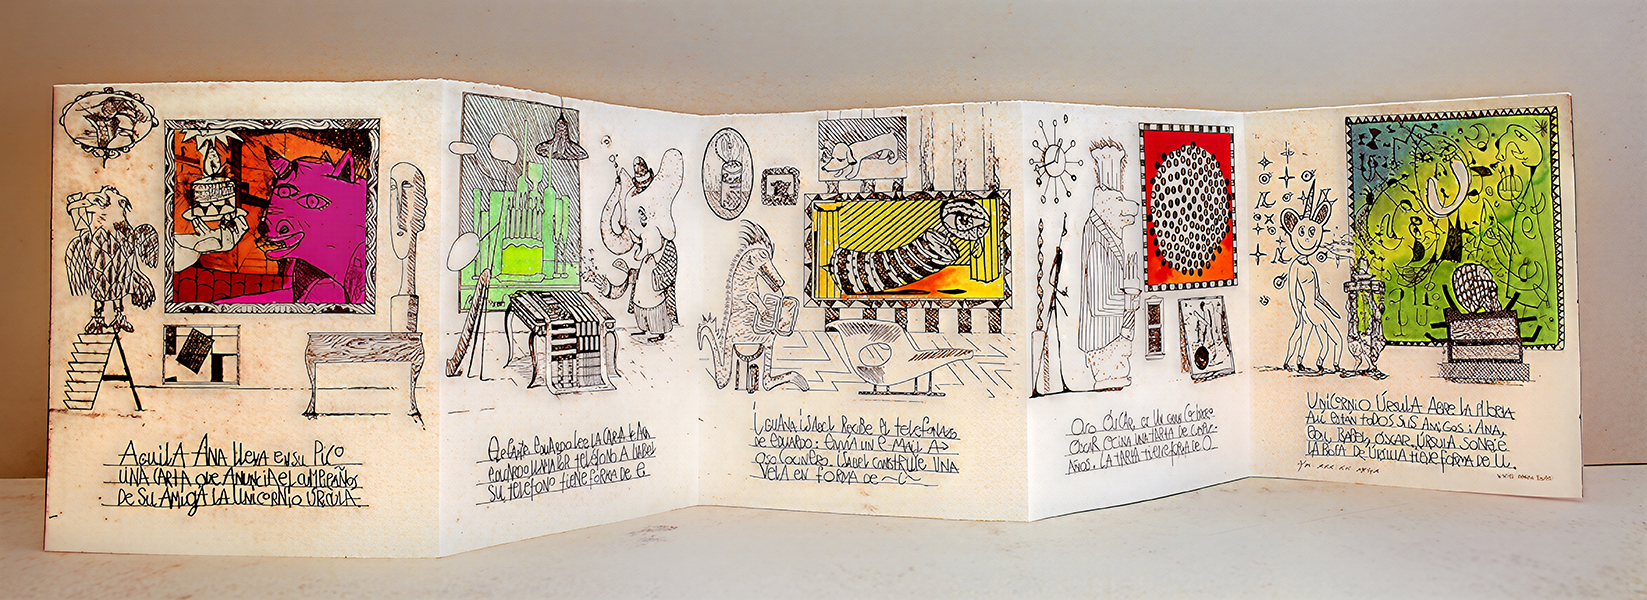 AGUILA ANA LLEVA EN SU PICO
UNA CARTA QUE ANUNCIA EL CUMPEAÑOS
DE SU AMIGA LA UNICORNIO ÚRSULA.
ELEFANTE EDUARDO LEE LA CARTA DE ANA
EDUARDO LLAMA POR TELÉFONO A ISABEL
SU TELÉFONO TIENE FORMA DE E.
IGUANA ISABEL RECIBE EL TELEFONAZO
DE EDUARDO: ENVIA UN E MAIL A
OSO COCINERO. ISABEL CONSTRUYE UNA
VELA EN FORMA DE
OSO ÓSCAR, ES UN GRAN COCINERO
OSCAR COCINA UNA TARTA DE
AÑOS. LA TARTA TIENE FORMA DE O.
UNICORNIO ÚRSULA ABRE LA PUERTA
ALLÍ ESTÁN TODOS SUS AMIGOS: ANA,
EDU, ISABEL, ÓSCAR. ÚRSULA SONRÍE
LA BOCA DE ÚRSULA TIENE FORMA DE U.